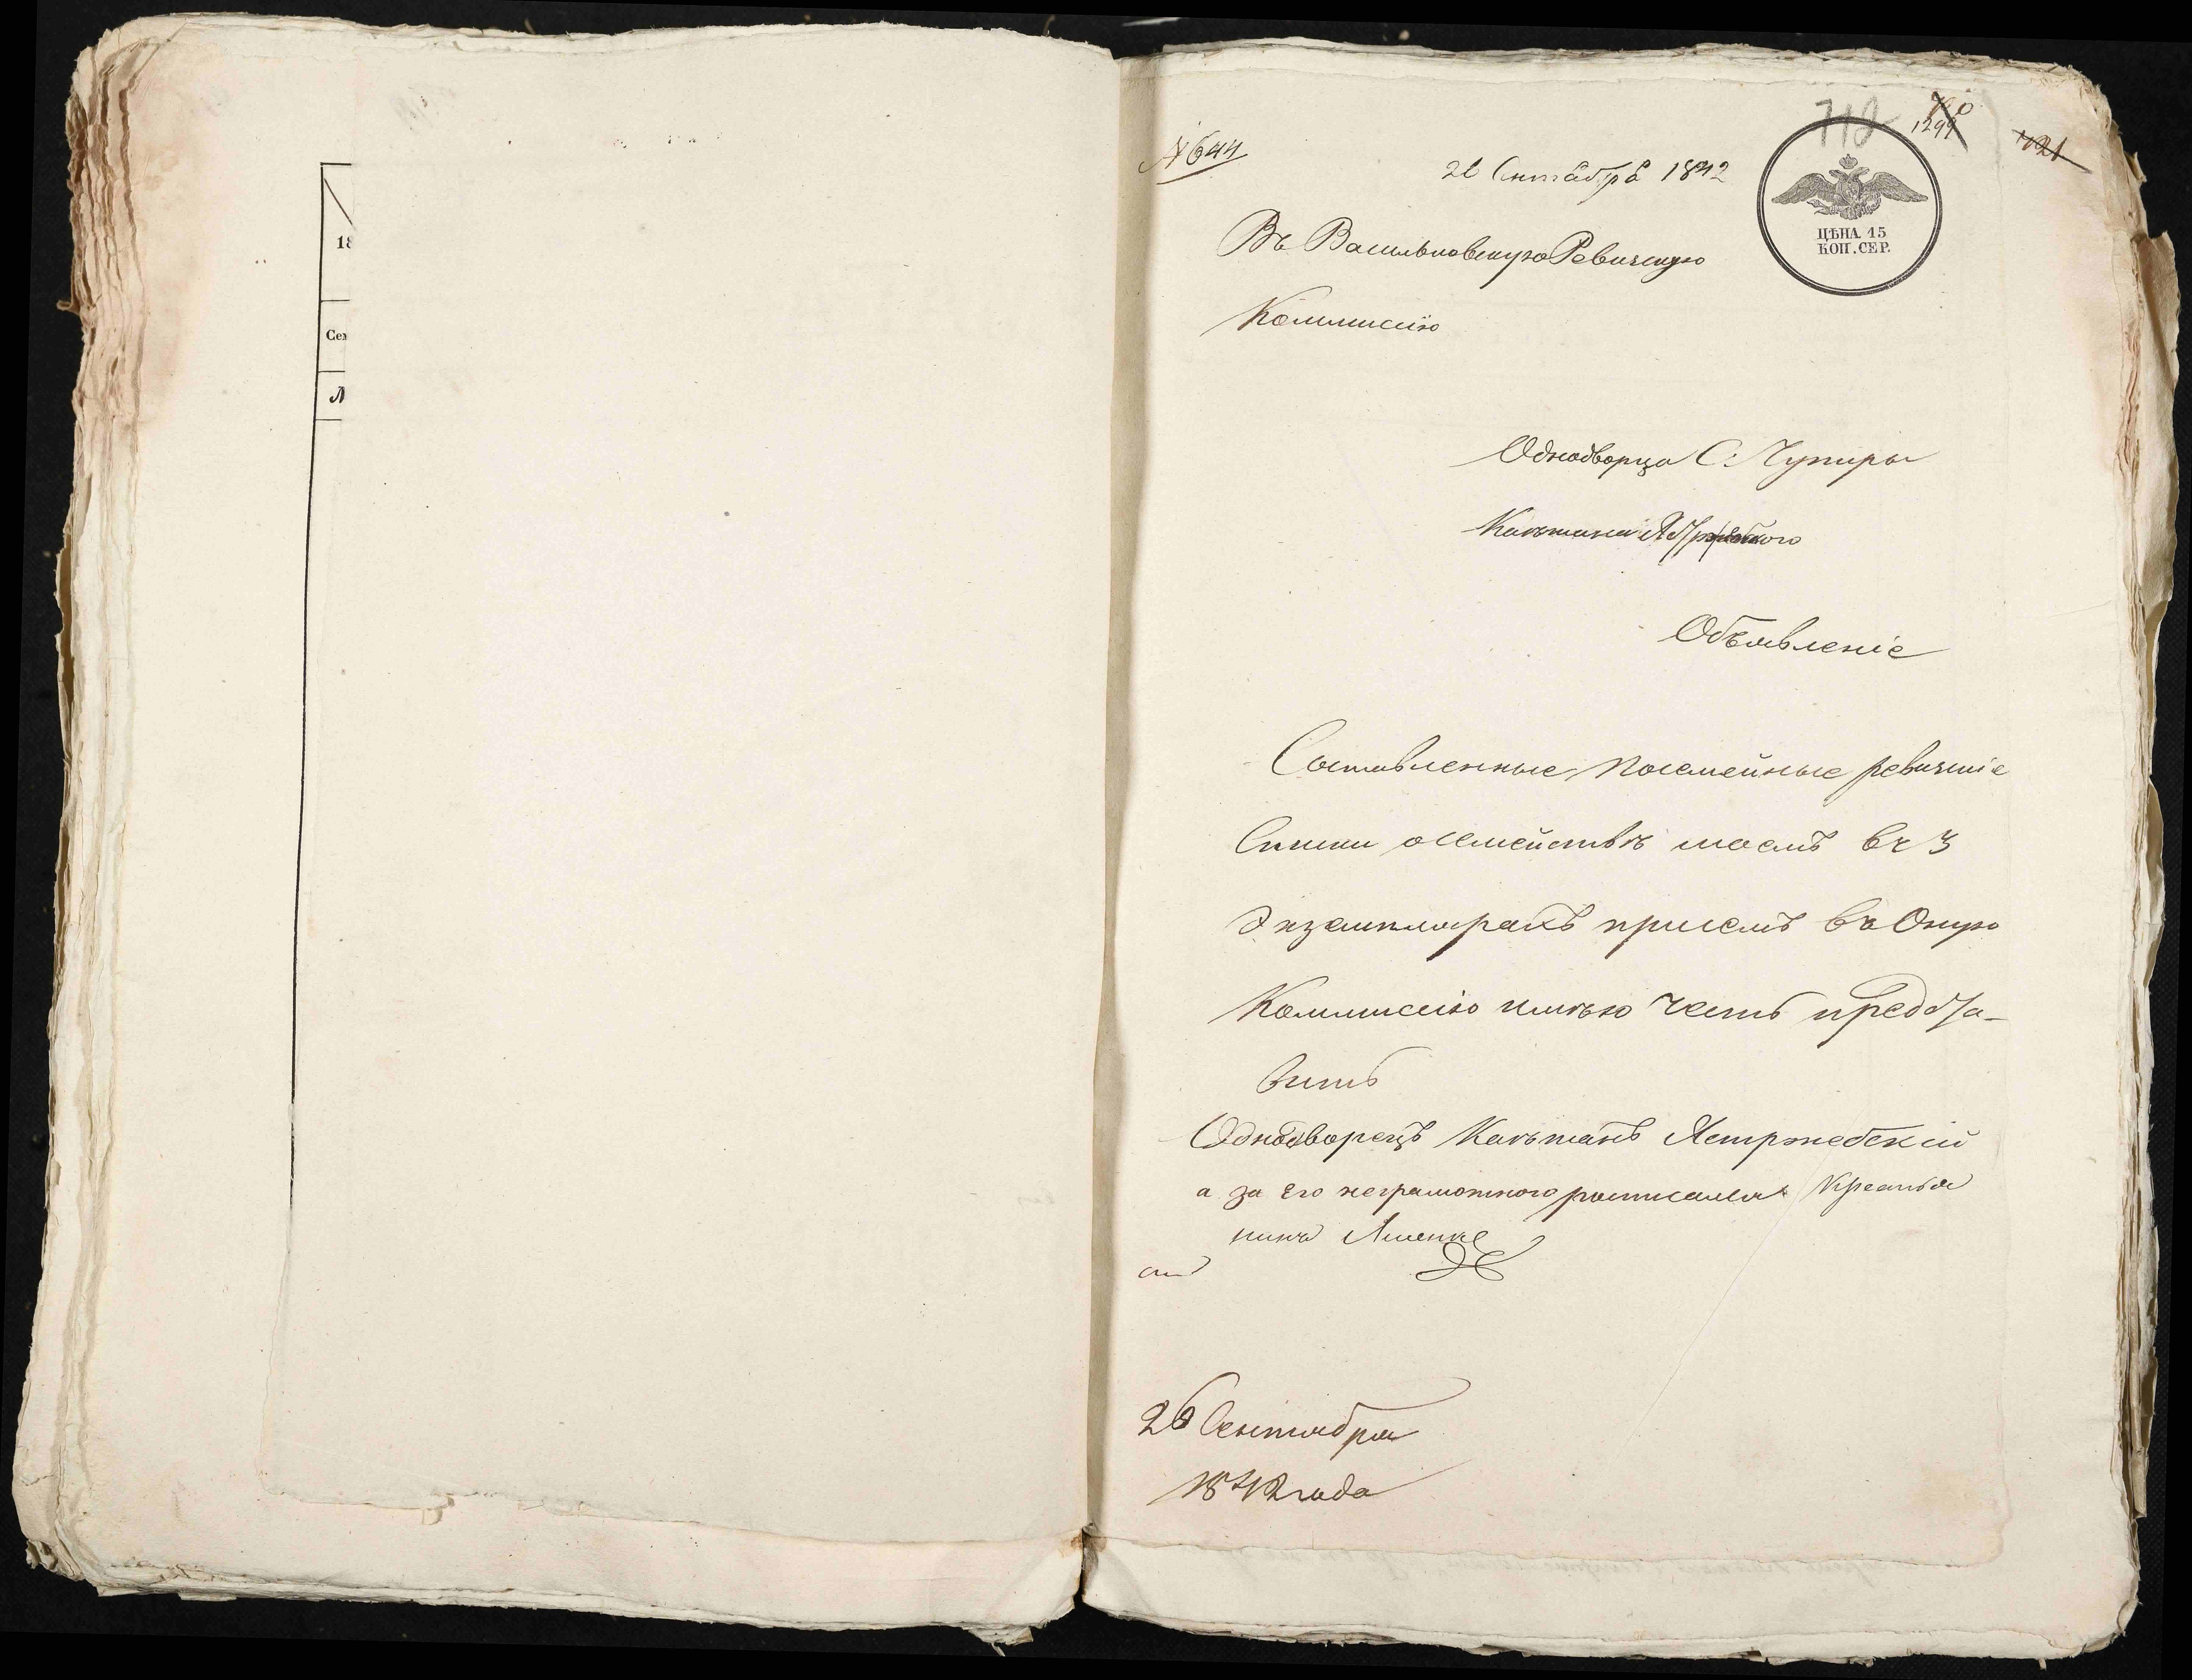 18
Сем
Л
№ 644
712
1299
421
26 Сентября 1842
ЦѢНА 15
КОП. СЕР.
Въ Васильковскую Ревизскую
Коммисію
Однодворца С: Чупиры
Каэтана
Объявленіе
Составленные посемейные ревизкіе
Списки о семействѣ моемъ въ 3
Экземплярахъ присемъ въ Оную
Коммисію имѣю честь предста-
вить
Однодворецъ Каэтанъ Ястржебскій
а за его неграмотного росписался Крестья
нинъ
26 Сентября
1842 года